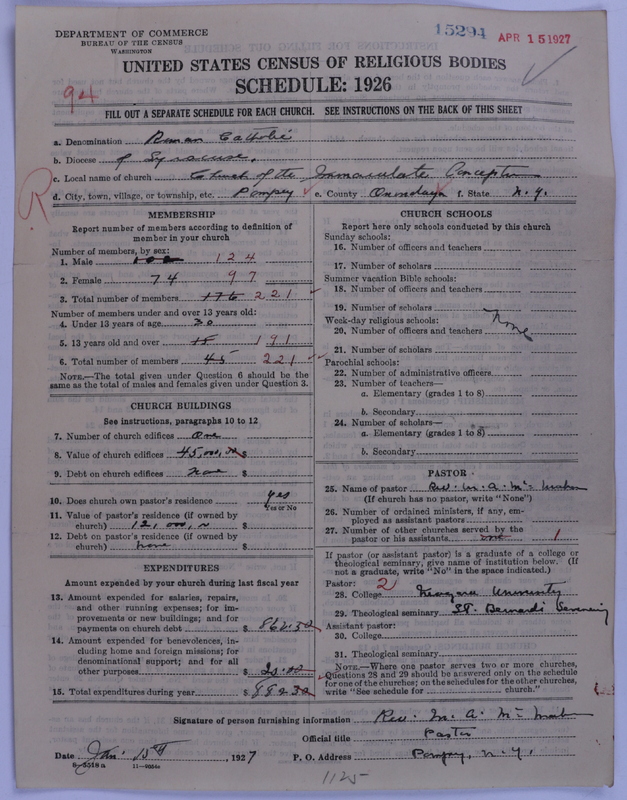 DEPARTMENT OF COMMERCE
BUREAU OF THE CENSUS
WASHINGTON
15294 APR 15 1927
UNITED STATES CENSUS OF RELIGIOUS BODIES
SCHEDULE: 1926
94
FILL OUT A SEPARATE SCHEDULE FOR EACH CHURCH. SEE INSTRUCTIONS ON THE BACK OF THIS SHEET
a. Denomination Roman Catholic
b. Diocese of Syracuse.
c. Local name of church Church of the Immaculate Conception
d. City, town, village, or township, etc. Pompey e. County Onondaga f. State N.Y.
R
MEMBERSHIP
Report number of members according to definition of
member in your church
Number of members, by sex:
1. Male 102 124
2. Female 74 97
3. Total number of members 176 221
Number of members under and over 13 years old:
4. Under 13 years of age 30
5. 13 years old and over 15 191
6. Total number of members 45 221
NOTE.—The total given under Question 6 should be the
same as the total of males and females given under Question 3.
CHURCH BUILDINGS
See instructions, paragraphs 10 to 12
7. Number of church edifices One
8. Value of church edifices 45,000,00 $
9. Debt on church edifices None $
10. Does church own pastor's residence yes
Yes or No
11. Value of pastor's residence (if owned by
church) 12,000 $
12. Debt on pastor's residence (if owned by
church) none $
EXPENDITURES
Amount expended by your church during last fiscal year
13. Amount expended for salaries, repairs,
and other running expenses; for im-
provements or new buildings; and for
payments on church debt $ 862.32
14. Amount expended for benevolences, in-
cluding home and foreign missions; for
denominational support; and for all
other purposes $ 20.00
15. Total expenditures during year $ 882 32
CHURCH SCHOOLS
Report here only schools conducted by this church
Sunday schools:
16. Number of officers and teachers
17. Number of scholars
Summer vacation Bible schools:
18. Number of officers and teachers
19. Number of scholars
Week-day religious schools:
20. Number of officers and teachers None
21. Number of scholars
Parochial schools:
22. Number of administrative officers
23. Number of teachers—
a. Elementary (grades 1 to 8)
b. Secondary
24. Number of scholars—
a. Elementary (grades 1 to 8)
b. Secondary
PASTOR
25. Name of pastor Rev. M. A. Mc
(If church has no pastor, write "None")
26. Number of ordained ministers, if any, em-
ployed as assistant pastors
27. Number of other churches served by the
pastor or his assistants one 1
If pastor (or assistant pastor) is a graduate of a college or
theological seminary, give name of institution below. (If
not a graduate, write "No" in the space indicated.)
Pastor: 2
28. College Niagara University
29. Theological seminary St. Bernard's Seminary
Assistant pastor:
30. College
31. Theological seminary
NOTE.—Where one pastor serves two or more churches,
Questions 28 and 29 should be answered only on the schedule
for one of the churches; on the schedules for the other churches,
write "See schedule for church."
Signature of person furnishing information Rev. M. A. Mc
Official title Pastor
Date Jan. 15th, 1927 P. O. Address Pompey, N.Y.
8—5518a 11—9034a
1125